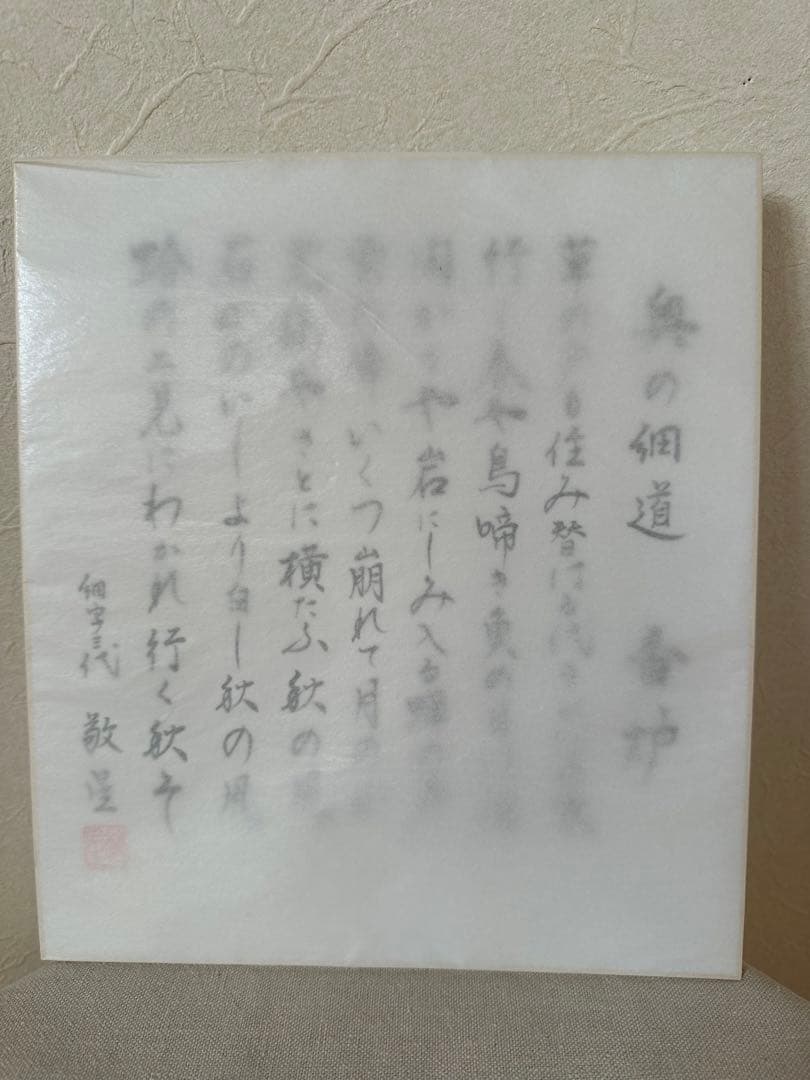 奥の細道 芭蕉
草の戸も住み替はる代
行く春や鳥啼き魚の目は
閑かさや岩にしみ入る蝉の声
雲の峰いくつ崩れて月の
荒海やさとに横たふ
石山のいしより白し秋の風
蛤の二見にわかれ行く秋ぞ
細字三代 敬